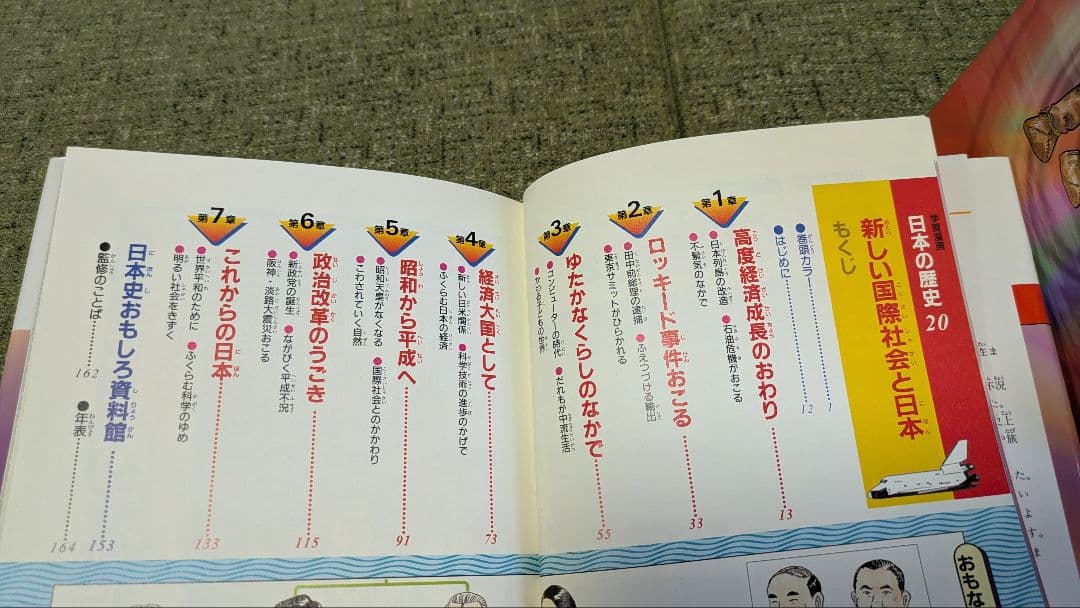 学習漫画
日本の歴史 20
新しい国際社会と日本
もくじ
●巻頭カラー 1
●はじめに 12
第1章
高度経済成長のおわり 13
●日本列島の改造 ●石油危機がおこる
●不景気のなかで
第2章
ロッキード事件おこる 33
●田中前総理の逮捕 ●ふえつづける輸出
●東京サミットがひらかれる
第3章
ゆたかなくらしのなかで 55
●コンピューターの時代 ●だれもが中流生活
第4章
経済大国として 73
●新しい日米関係 ●科学技術の進歩のかげで
●ふくらむ日本の経済
第5章
昭和から平成へ 91
●昭和天皇がなくなる ●国際社会とのかかわり
●こわされていく自然
第6章
政治改革のうごき 115
●新政党の誕生 ●ながびく平成不況
●阪神・淡路大震災おこる
第7章
これからの日本 133
●世界平和のために ●ふくらむ科学のゆめ
●明るい社会をきずく
日本史おもしろ資料館 153
●監修のことば 162 ●年表 164
おもな